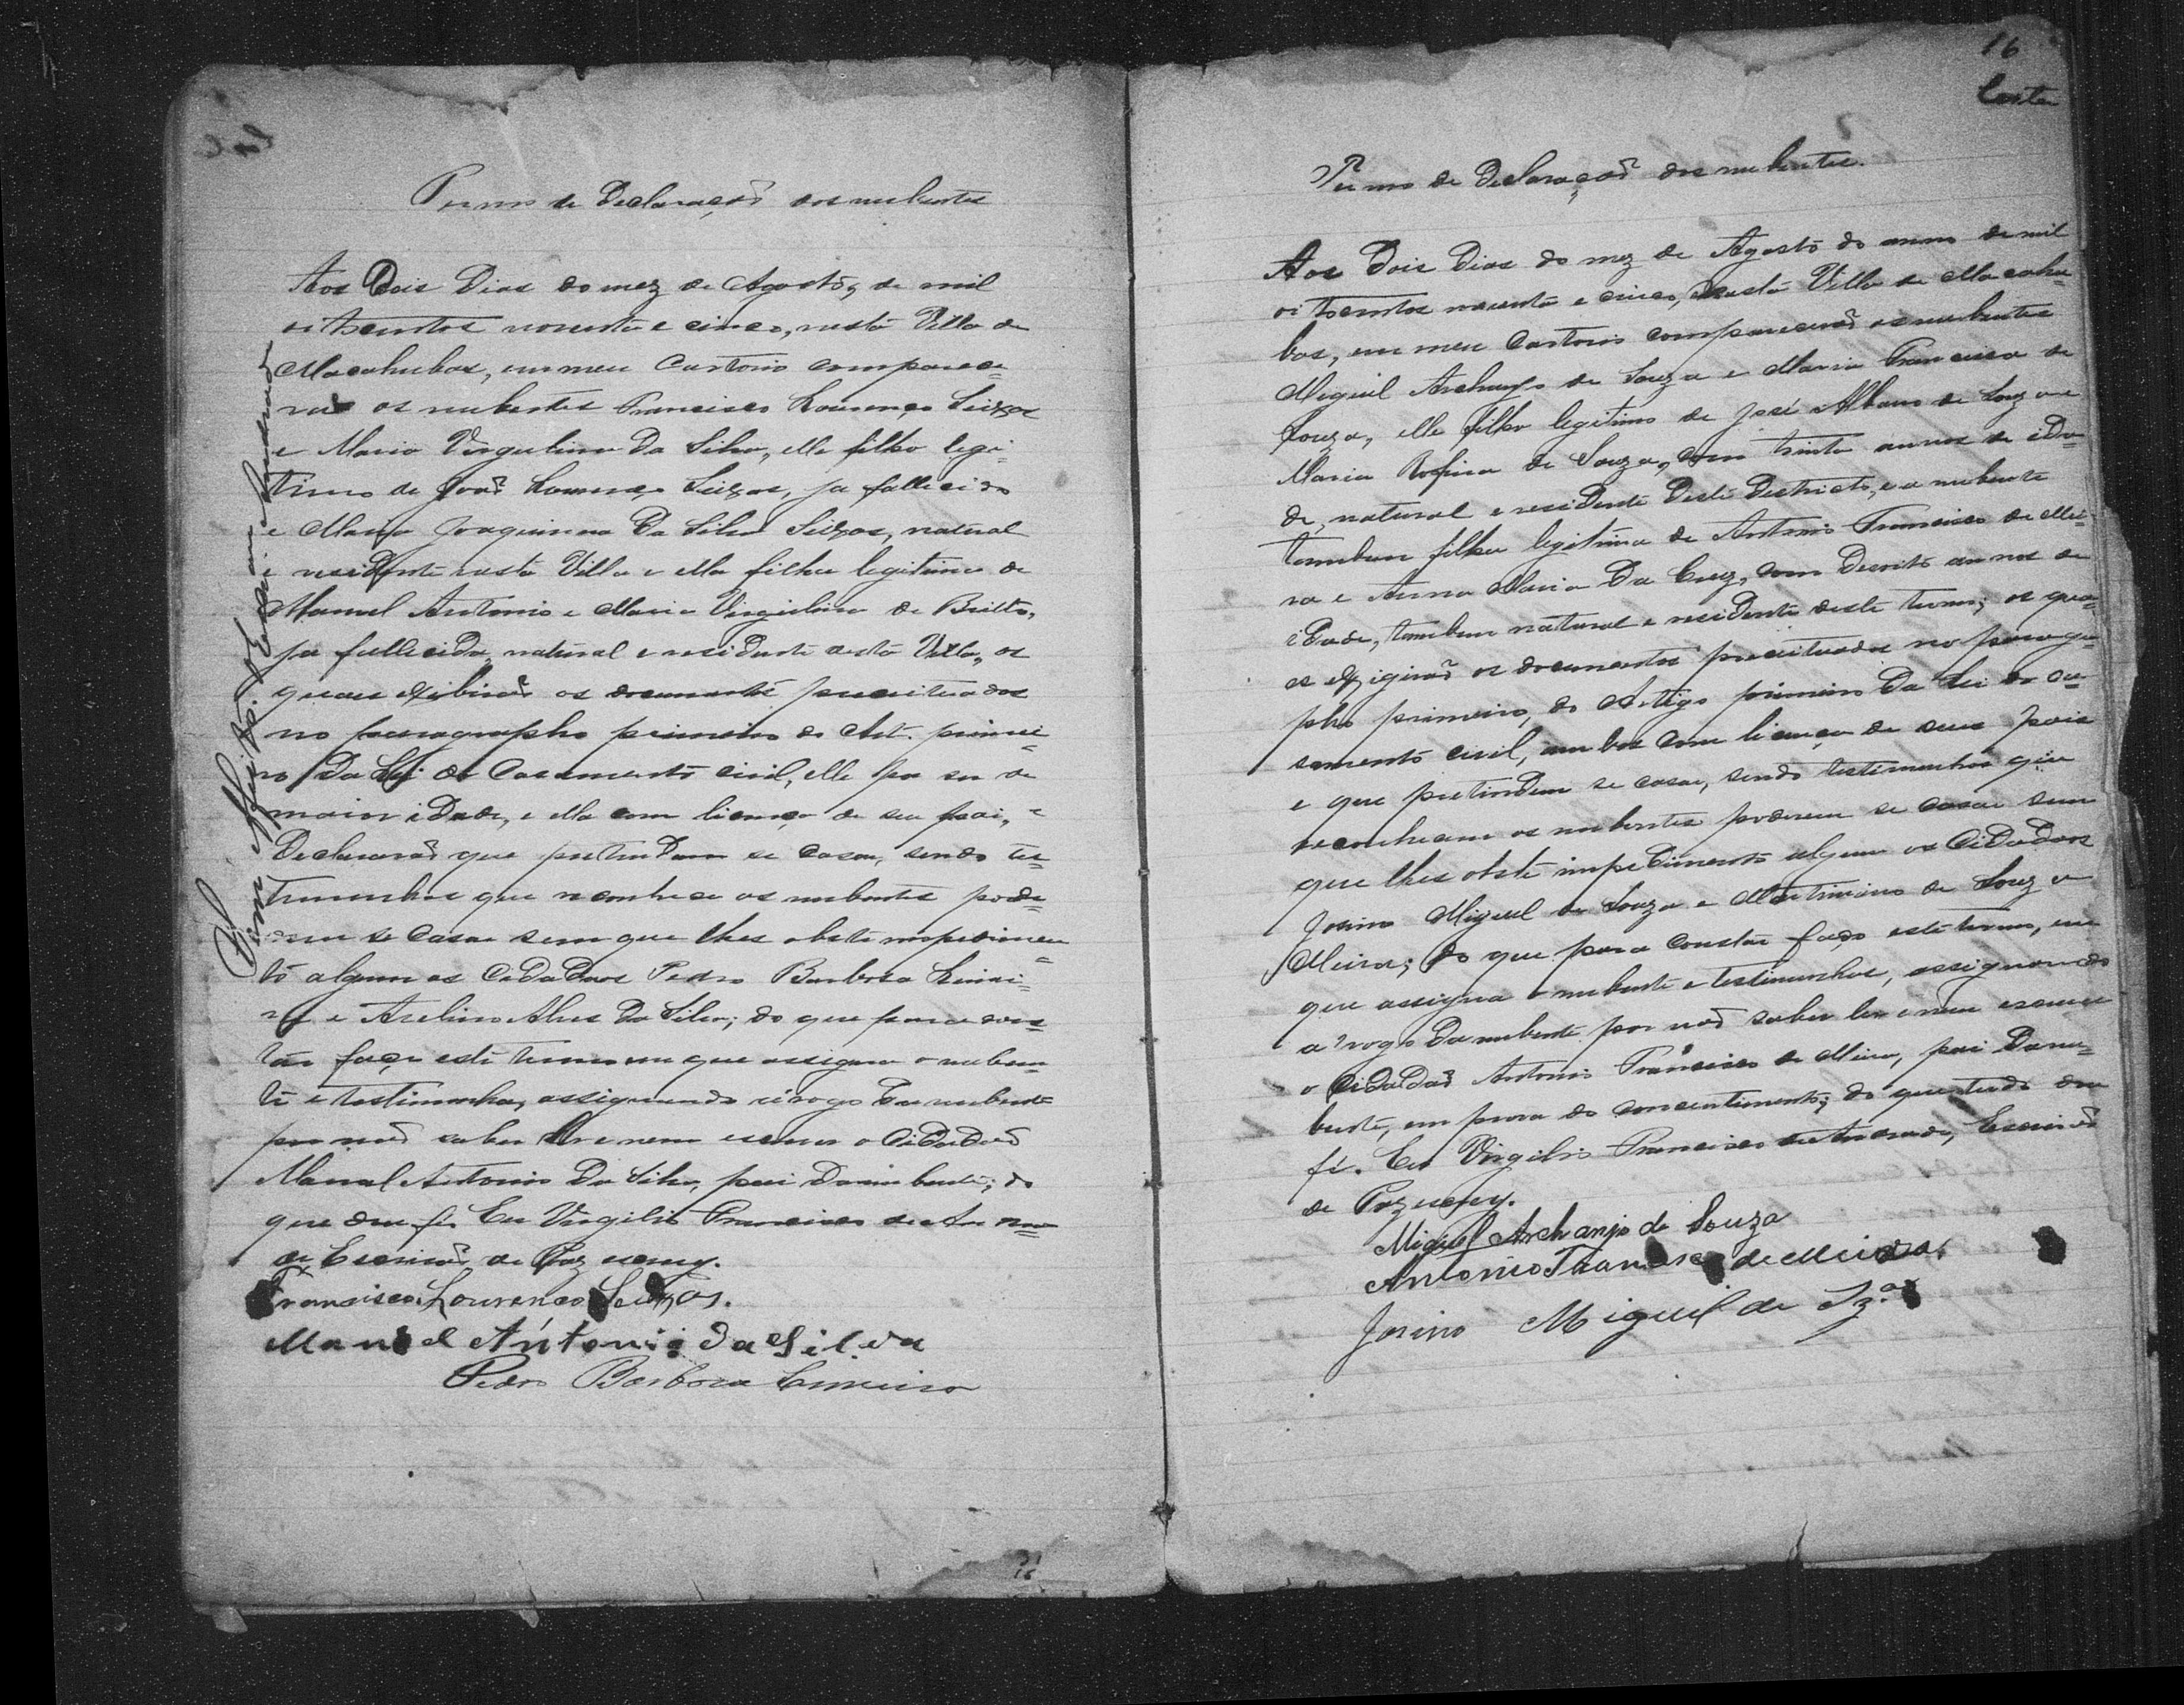 Termo de Declaração dos nubentes
Aos Dois Dias do mez de Agosto, de mil
oitocentos noventa e cinco, nesta Villa de
Macahubas, em meu Cartorio compare-
rão os nubentes Francisco Lourenço Seixas
e Maria Virgulina Da Silva, elle filho legi-
timo de João Lourenço Seixas, ja fallecido
e Maria Joaquinna Da Silva Seixas, natural
e residente nesta Villa e ella filha legitima de
Manuel Antonio e Maria Virgulina de Britto,
ja fallecida, natural e residente desta Villa, os
quaes exibirão os documentos preceituados
no paragrapho primeiro do Art. primei-
ro Da Lei do Casamento civil, elle por ser de
maior idade, e ella com licença de seu pai, e
Declararão que pretendem se casar, sendo tes-
temunhas que reconhece os nubentes pode-
rem se casar sem que lhes obste impedimen-
to algum os Cidadãos Pedro Barbosa
e Avelino Alves Da Silva; do que para cons-
tar faço este termo em que assigna o nuben-
te e testimunhas, assignando a rogo Da nubente
por não saber ler e nem escrever o Cidadão
Manoel Antonio Da Silva, pai Da nubente; do
que dou fé. Eu Virgilio Francisco de An
de Escrivão de Paz escrevy.
Francisco Lourenço Seixas.
Manoel Antonio da Silva
Pedro Barboza
16
Costa
Termo de Declaração dos nubentes.
Aos Dois Dias do mez de Agosto do anno de mil
oitocentos noventa e cinco, nesta Villa de Macahu-
bas, em meu Cartorio comparecerão os nubentes
Miguel Archanjo de Souza e Maria Francisca de
Souza, elle filho legitimo de José Albano de Souza e
Maria Rofina de Souza, com trinta annos de ida-
de, natural e residente Deste Destricto, e a nubente
tambem filha legitima de Antonio Francisco de Mei-
ra e Anna Maria Da Cruz, com Dezoito annos de
idade, tambem natural e residente deste termo; os qua-
es exigirão os documentos preceituados no paragra-
pho primeiro, do Artigo primeiro Da Lei do ca-
samento civil, ambos com licença de seus pais
e que pretendem se casar, sendo testimunhas que
reconhecem os nubentes poderem se casar sem
que lhes obste impedimento algum os Cidadãos
Josino Miguel de Souza e Martiniano de Souza
Meira; do que para constar faço este termo, em
que assigna o nubente e testimunhas, assignando
a rogo Da nubente por não saber ler e nem escrever
o Cidadão Antonio Francisco de Meira, pai Da nu-
bente, em prova do consentimento; do que tudo dou
fé. Eu Virgilio Francisco de Andrade, Escrivão
de Paz escrevy.
Miguel Archanjo de Souza
Antonio Francisco de Meira.
Josino Miguel de Sz.ª